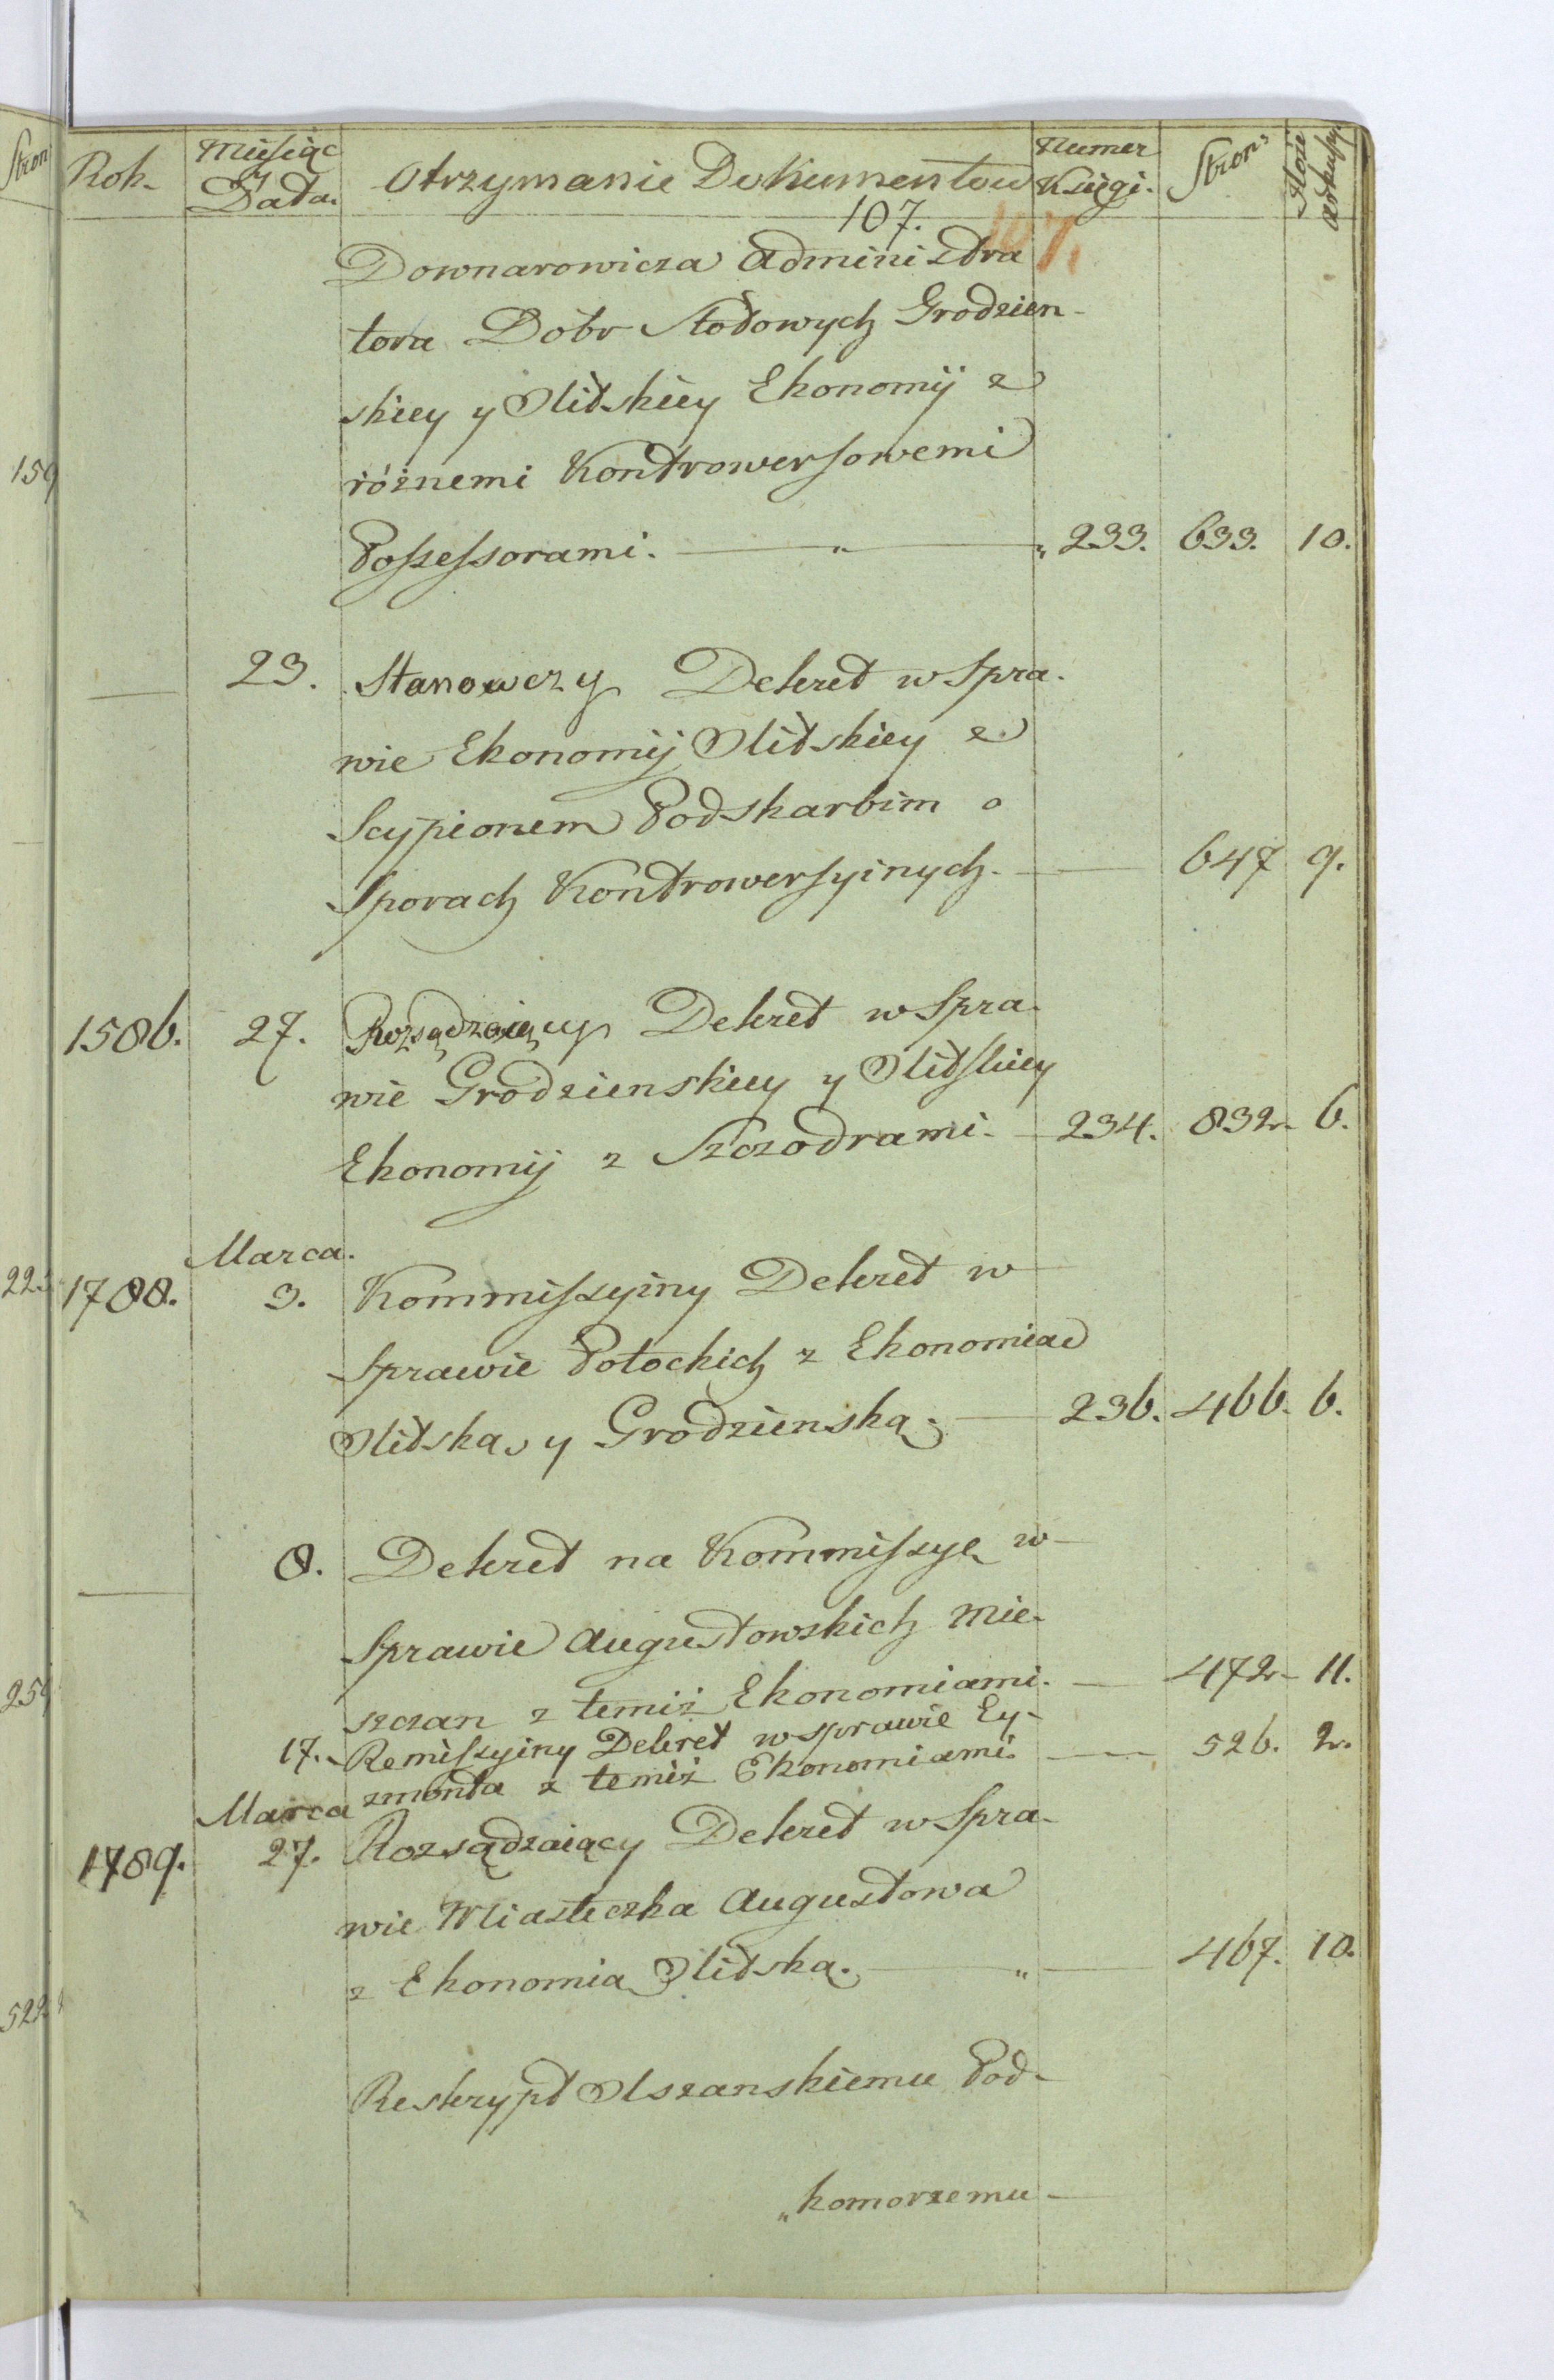 Stron
Rok. Miesiąc y Data. Otrzymanie Dokumentow Numer Księgi. Stron Ilość arkuszy
107. 107.
Downarowicza Administra
tora Dobr Stołowych Grodzien-
skiey y Olitskiey Ekonomij z
różnemi Kontrowersowemi
Possessorami. — „ — „ 233. 633. 10.
159
— 23. Stanowczy Dekret w Spra-
wie Ekonomij Olitskiey z
Scypionem Podskarbim o
Sporach Kontrowersyinych. — 647 9.
1586. 27. Rozsądzaiący Dekret w Spra-
wie Grodzienskiey y Olitskiey
Ekonomij z Szczodrami. — 234. 832. 6.
Marca.
1788. 3. Kommissyiny Dekret w
Sprawie Potockich z Ekonomia
Olitską y Grodzienską. — 236. 466. 6.
— 8. Dekret na Kommissyę w
Sprawie Augustowskich Mie-
szczan z temiż Ekonomiami. — 472 — 11.
17. Remissyiny Dekret w sprawie Ey-
zmonta z temiż Ekonomiami. — 526. 2.
Marca
1789. 27. Rozsądzaiący Dekret w Spra-
wie Miasteczka Augustowa
z Ekonomią Olitską. — „ — 467. 10.
Reskrypt Olszanskiemu Pod-
„komorzemu —